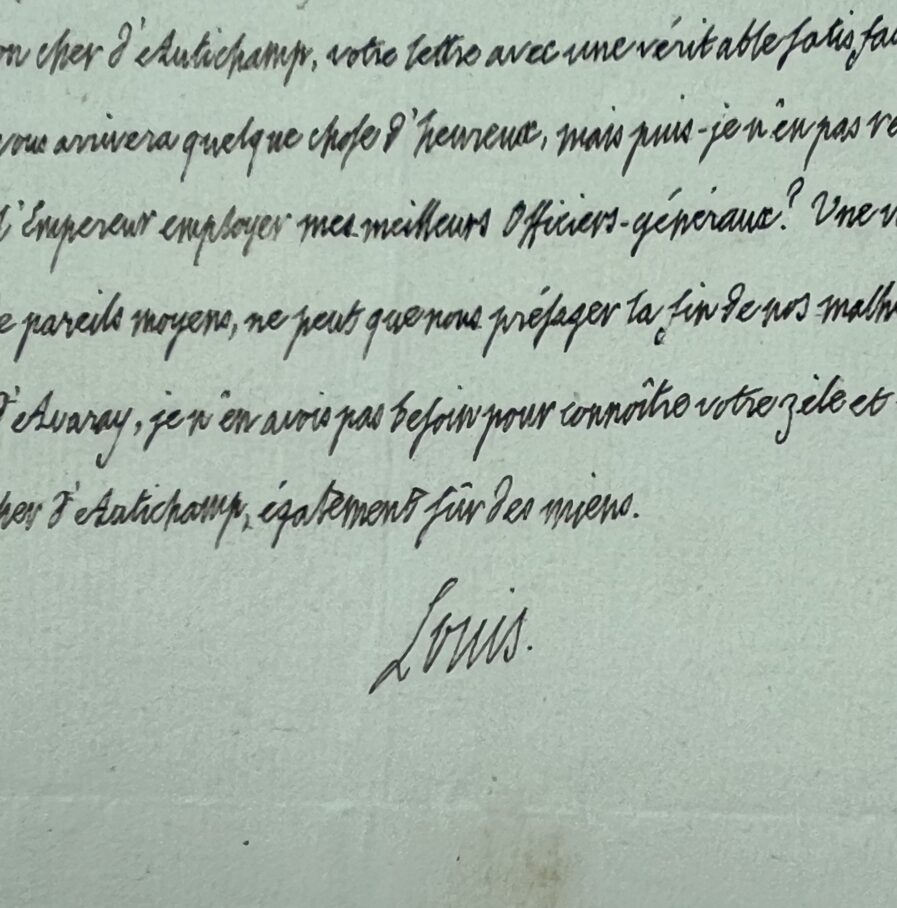 on cher d'Autichamp, votre lettre avec une véritable satisfac
vous arrivera quelque chose d'heureux, mais puis-je n'en pas re
l'Empereur employer mes meilleurs Officiers-généraux? Une
e pareils moyens, ne peut que nous présager la fin de nos malh
d'Avaray, je n'en avois pas besoin pour connoître votre zèle et
cher d'Autichamp, également sûr des miens.
Louis.